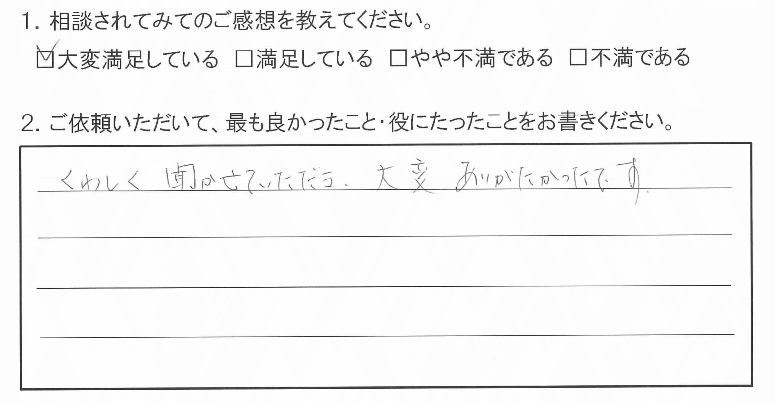 1. 相談されてみてのご感想を教えてください。
☑大変満足している □満足している □やや不満である □不満である
2. ご依頼いただいて、最も良かったこと・役にたったことをお書きください。
くわしく 聞かせていただき、大変 ありがたかったです。